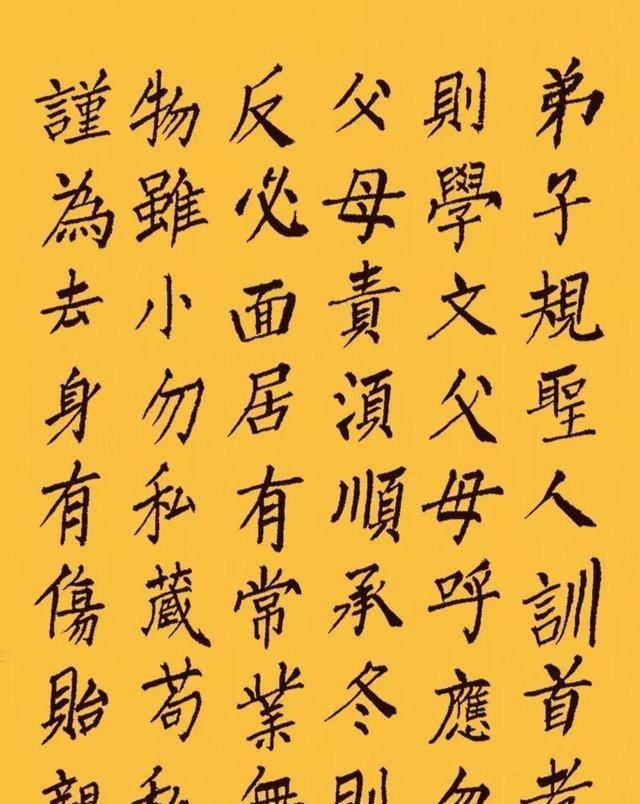 弟子規聖人訓首孝
則學文父母呼應勿
父母責須順承冬則
反必面居有常業無
物雖小勿私藏苟私
謹為去身有傷貽親